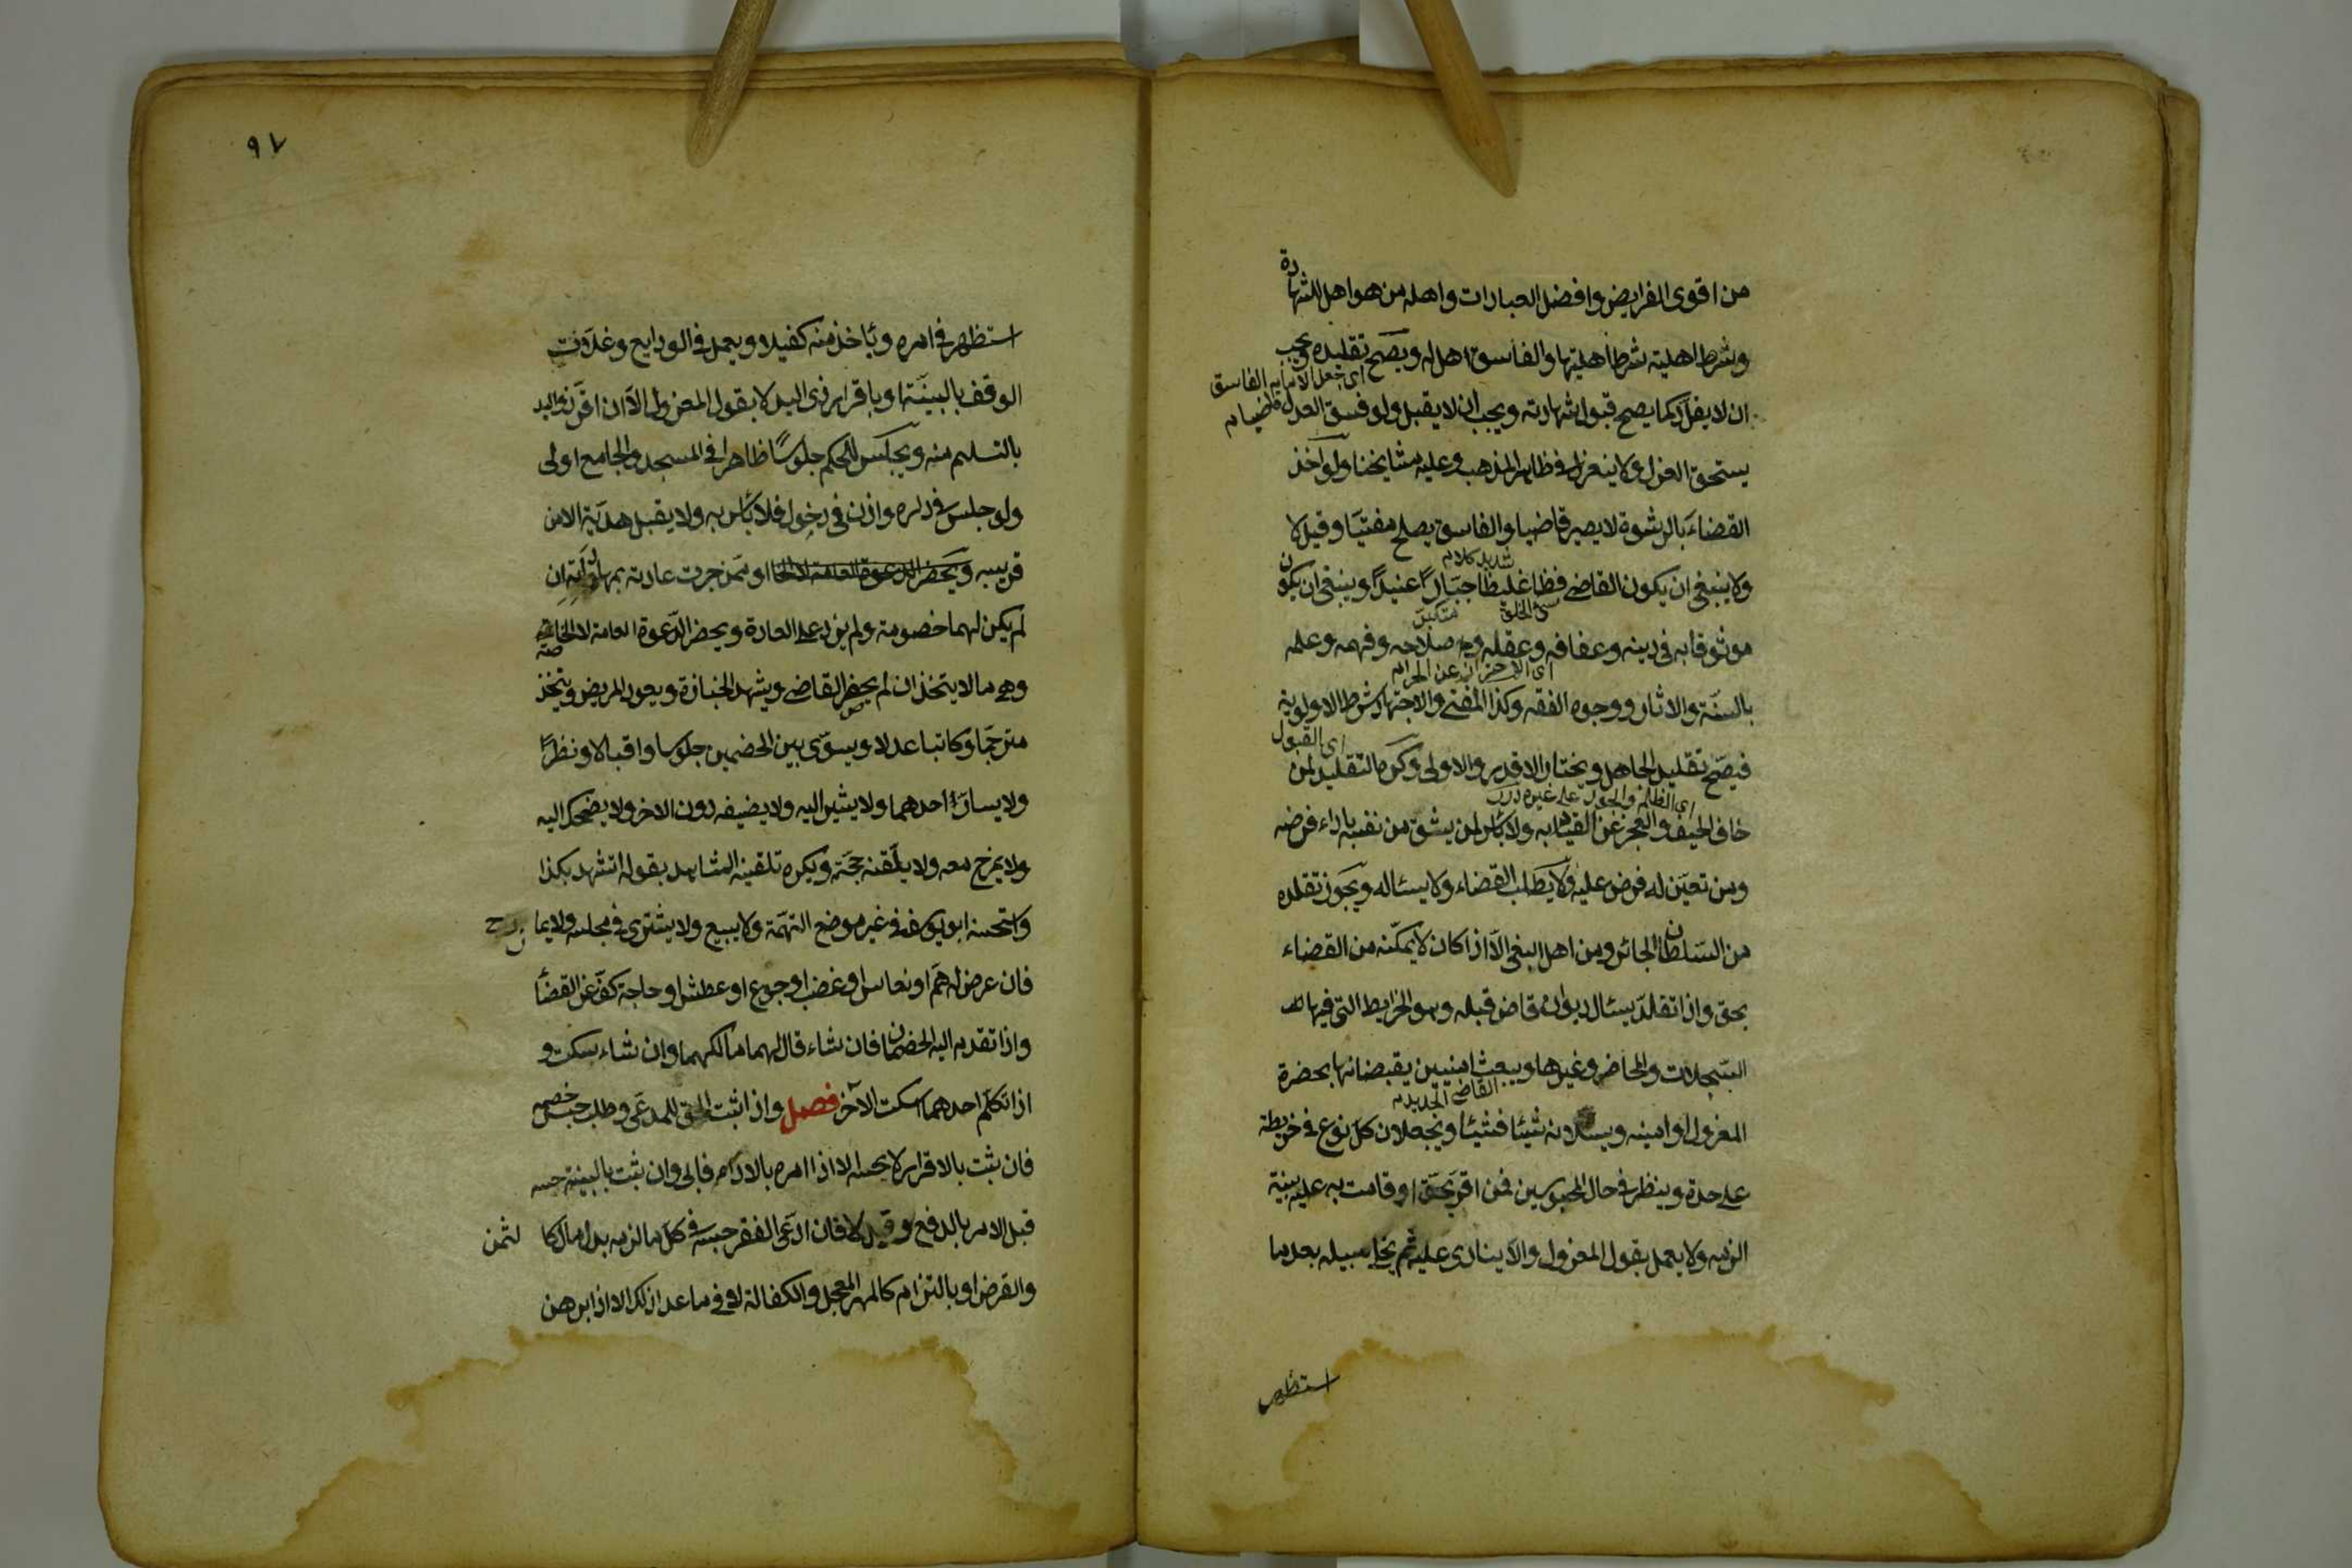 من اقوى الفرايض وافضل العبادات واهله من هو اهل للشهادة
وشرط اهليته شرط اهليتها والفاسق اهل له ويصح تقليده ويجب
اى جعل الامام الفاسق قاضيا م
ان لا يقلد كما يصح قبول شهادته ويجب ان لا يقبل ولو فسق العدل
يستحق العزل ولا ينعزل في ظاهر المذهب وعليه مشايخنا ولو اخذ
القضاء بالرشوة لا يصير قاضيا والفاسق يصلح مفتيا وقيل لا
شديد كلام
ولا ينبغي ان يكون القاضي فظا غليظا جبارا عنيدا وينبغي ان يكون
سئ الخلق متكبر
موثوقا به في دينه وعفافه وعقله وصلاحه وفهمه وعلمه
اى الاحتراز عن الحرام
بالسنة والاثار ووجوه الفقه وكذا المفتي والاجتهاد شرط الاولوية
اى القبول
فيصح تقليد الجاهل ويختار الاقدر والاولى وكره التقليد لمن
اى الظلم والجور على غيره درر
خاف الحيف والعجز عن القيام به ولا بأس لمن يثق من نفسه باداء فرضه
ومن تعين له فرض عليه ولا يطلب القضاء ولا يسئاله ويجوز تقلده
من السلطان الجائر ومن اهل البغي الا اذا كان لا يمكنه من القضاء
بحق واذا تقلد يسئال ديوان قاض قبله وهو الخرايط التي فيها
السجلات والمحاضر وغيرها ويبعث امنيين يقبضانها بحضرة
القاضى الجديد م
المعزول او امينه ويسئلانه شيئا فشيئا ويجعلان كل نوع في خريطة
على حدة وينظر في حال المحبوسين فمن اقر بحق او قامت به عليه بينة
الزمه ولا يعمل بقول المعزول والا ينادى عليه ثم يخلى سبيله بعد ما
استظهر
٩٧
استظهر في امره ويأخذ منه كفيلا ويعمل في الودايع وغلات
الوقف بالبينة او باقرار ذى اليد لا بقول المعزول الا ان اقر ذو اليد
بالتسليم منه ويجلس للحكم جلوسا ظاهرا في المسجد والجامع اولى
ولو جلس في داره واذن في دخول فلا بأس به ولا يقبل هدية الا من
قريبه ويحضر الدعوة العامة لا الخا او ممن جرت عادته بمهاداته ان
لم يكن لهما خصومة ولم يزد على العادة ويحضر الدعوة العامة لا الخاصة
وهي ما لا يتخذ ان لم يحضر القاضي ويشهد الجنازة ويعود المريض ويتخذ
مترجما وكاتبا عدلا ويسوى بين الخصمين جلوسا واقبالا ونظرا
ولا يسار احدهما ولا يشير اليه ولا يضيفه دون الاخر ولا يضحك اليه
ولا يمزح معه ولا يلقنه حجة ويكره تلقينه الشاهد بقوله اتشهد بكذا
واستحسنه ابو يوسف في غير موضع التهمة ولا يبيع ولا يشترى في مجلسه ولا يمازح
فان عرض له هم او نعاس او غضب او جوع او عطش او حاجة كف عن القضأ
واذا تقدم اليه الخصمان فان شاء قال لهما ما لكهما وان شاء سكت و
اذا تكلم احدهما اسكت الآخر فصل واذا ثبت الحق للمدعى وطلب حبس خصمه
فان ثبت بالاقرار لا يحبسه الا اذا امره بالاداء فابى وان ثبت بالبينة حبسه
قبل الامر بالدفع وقيل لا فان ادعى الفقر حبسه في كل ما لزمه بدل مال كالثمن
والقرض او بالتزام كالمهر المعجل والكفالة لا في ما عدا ذلك الا اذا برهن